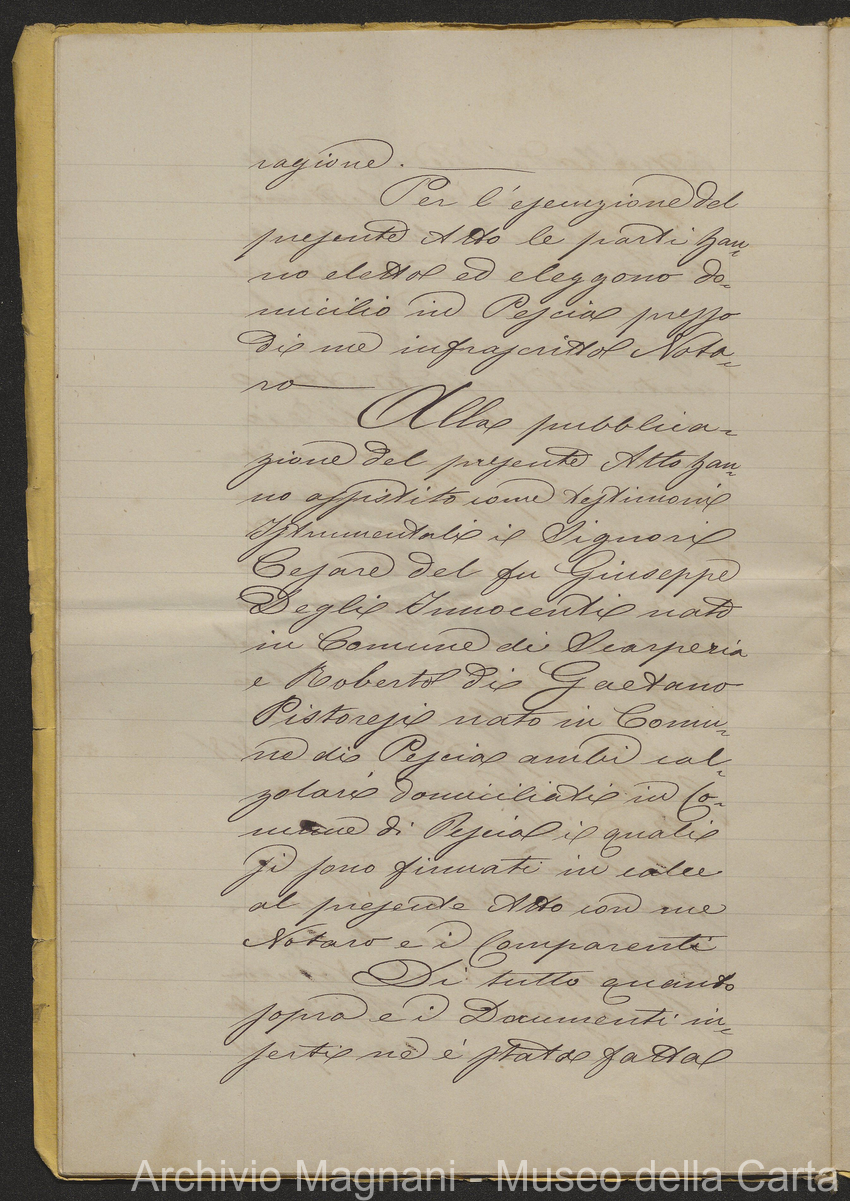 ragione.
Per l'esecuzione del
presente Atto le parti han=
no eletto ed eleggono do=
micilio in Pescia presso
di me infrascritto Nota=
ro
Alla pubblica=
zione del presente Atto han=
no assistito come testimoni
Istrumentali i Signori
Cesare del fu Giuseppe
Degli Innocenti nato
in Comune di Scarperia
e Roberto di Gaetano
Pistoresi nato in Comu=
ne di Pescia ambi cal=
zolari domiciliati in Co=
mune di Pescia i quali
si sono firmati in calce
al presente Atto con me
Notaro e i Comparenti
Di tutto quanto
sopra e i Documenti in=
serti ne è stata fatta
Archivio Magnani - Museo della Carta